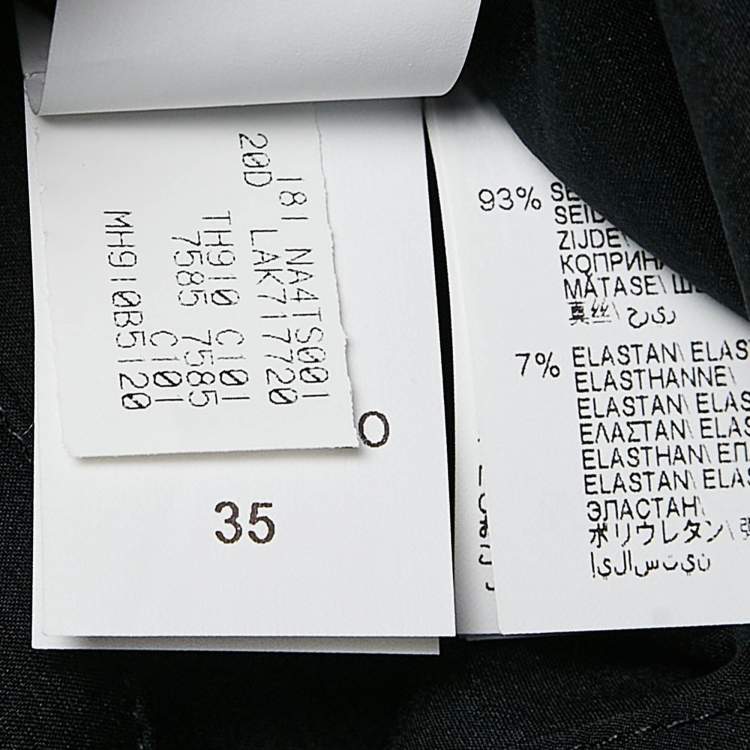 20D
181 NA4TS001
LAK717720
TH910 C101
7585 7585
C101
MH910B5120
O
35
93%
ZIJDE\
КОПРИНА
MĂTASE\
真丝\ حرير
7% ELASTAN\
ELASTHANNE\
ELASTAN\
ΕΛΑΣΤΑΝ\
ELASTHAN\
ELASTAN\
ЭЛАСТАН\
ポリウレタン\
إيلاستين